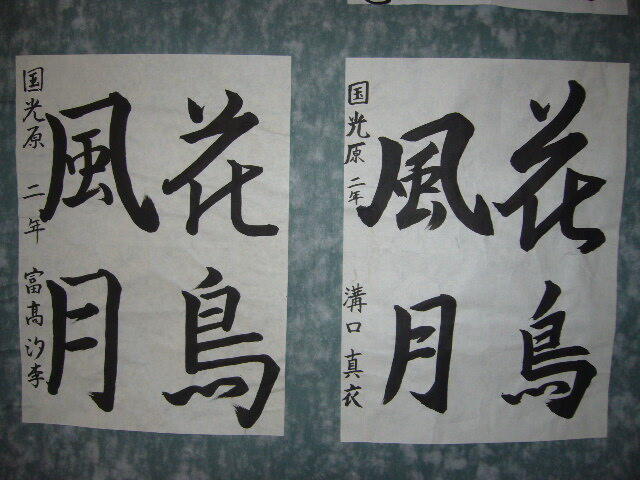 花鳥
風月
国光原 二年 富高汐李
花鳥
風月
国光原 二年 溝口真衣